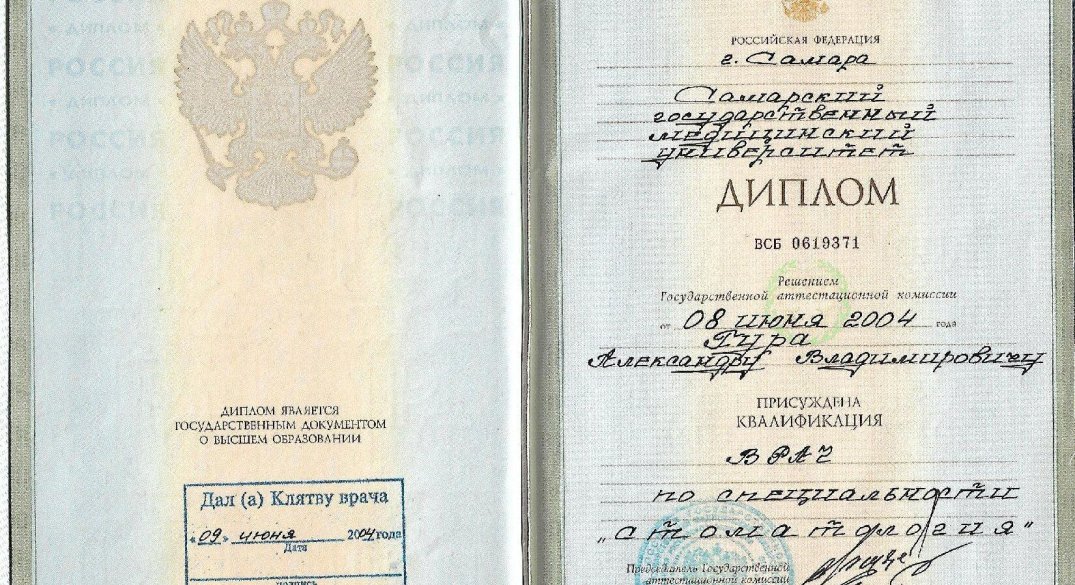 • ДИПЛОМ •
РОССИЯ
• ДИПЛОМ •
РОССИЯ
• ДИПЛОМ •
РОССИЯ
ДИПЛОМ ЯВЛЯЕТСЯ
ГОСУДАРСТВЕННЫМ ДОКУМЕНТОМ
О ВЫСШЕМ ОБРАЗОВАНИИ
Дал (а) Клятву врача
«09» июня 2004 года
Дата
подпись
РОССИЙСКАЯ ФЕДЕРАЦИЯ
г. Самара
Самарский
государственный
медицинский
университет
ДИПЛОМ
ВСБ 0619371
Решением
Государственной аттестационной комиссии
от 08 июня 2004 года
Гура
Александру Владимировичу
ПРИСУЖДЕНА
КВАЛИФИКАЦИЯ
ВРАЧ
по специальности
„стоматология"
Председатель Государственной
аттестационной комиссии